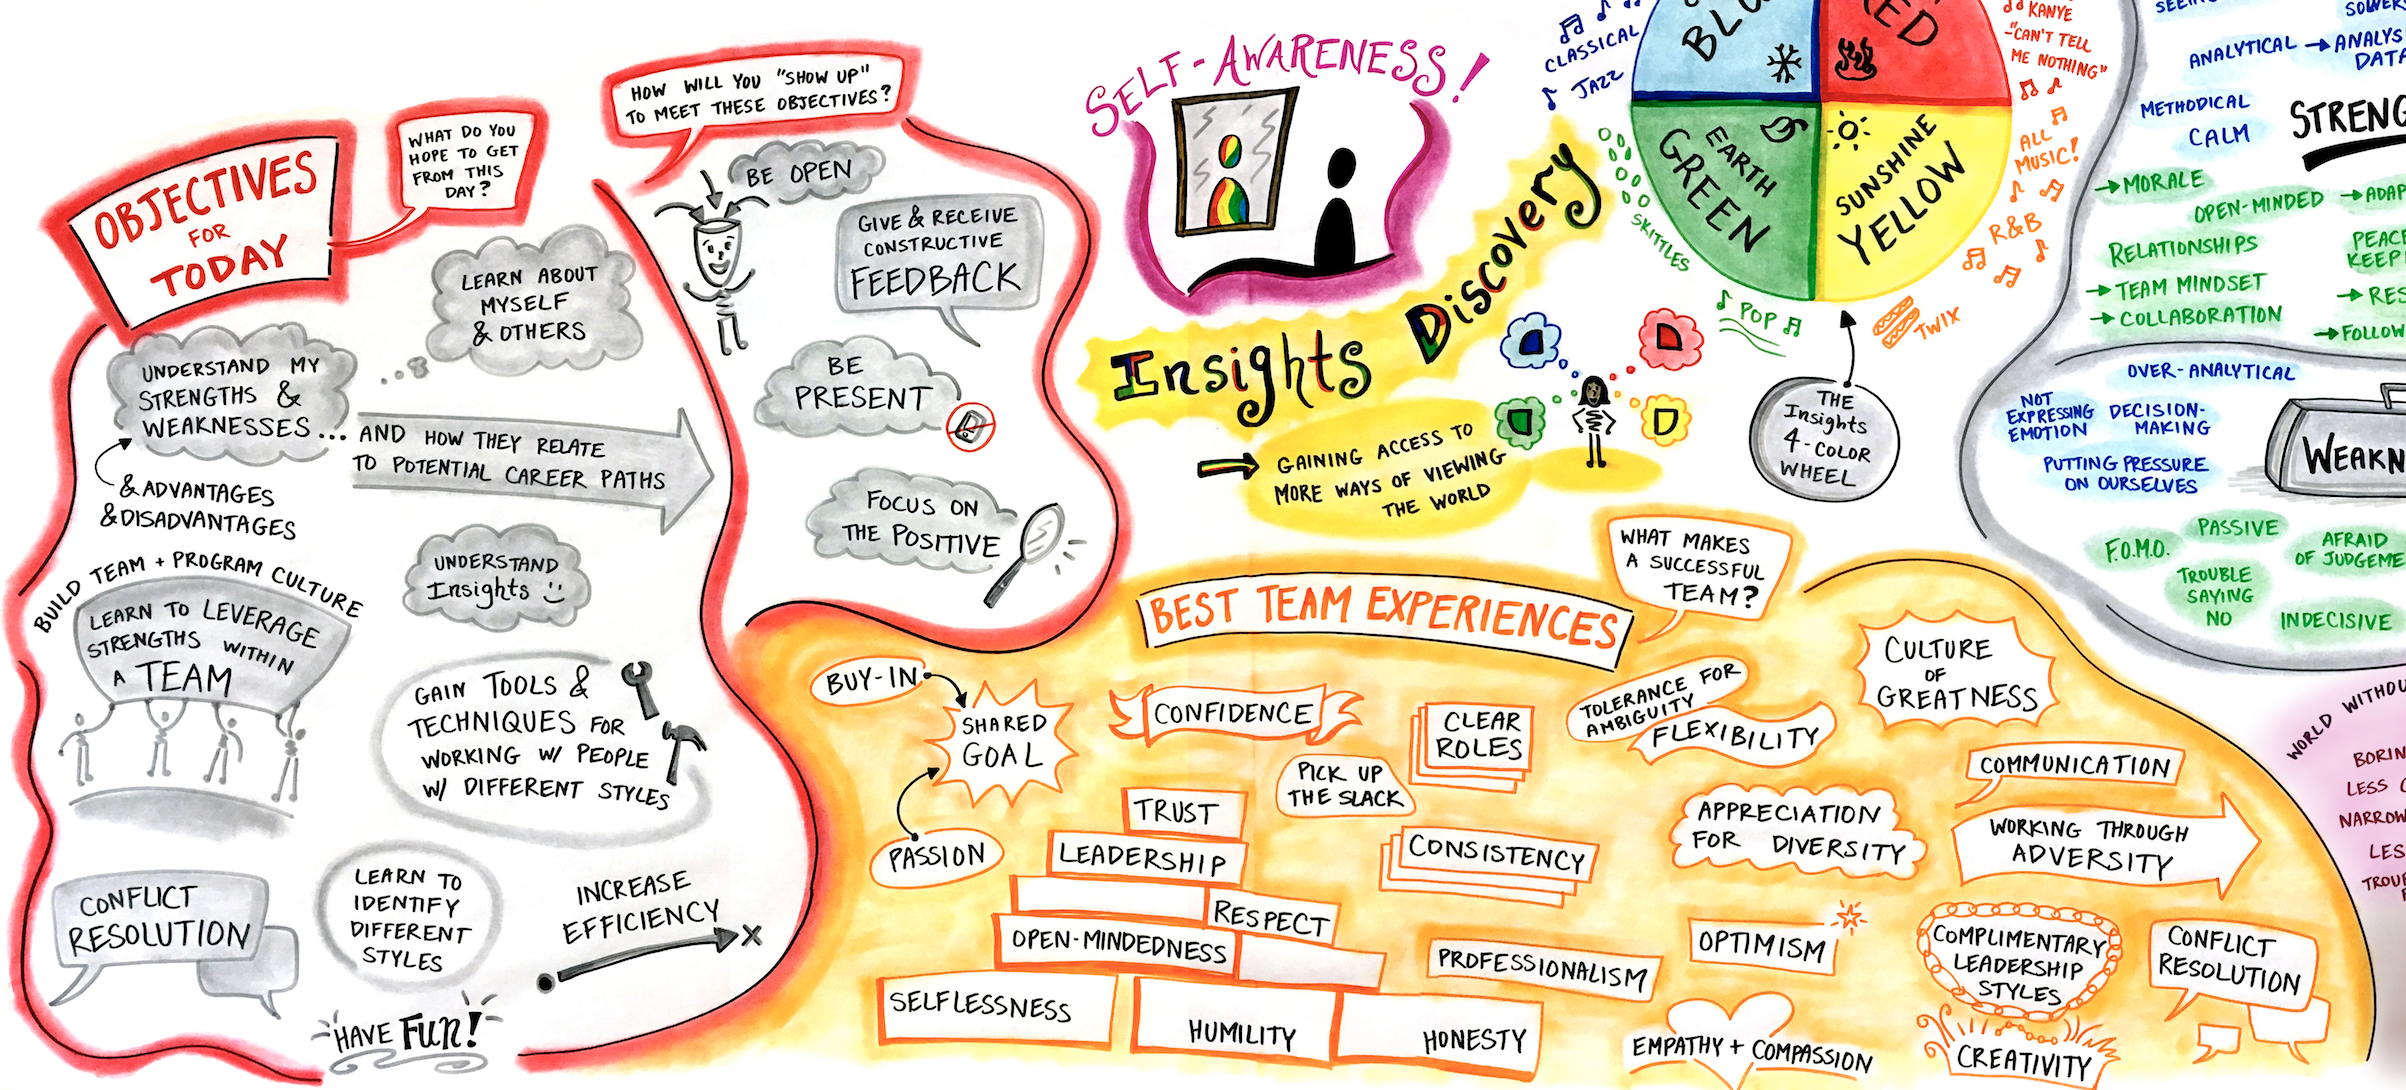 OBJECTIVES
FOR
TODAY
WHAT DO YOU
HOPE TO GET
FROM THIS
DAY?
HOW WILL YOU "SHOW UP"
TO MEET THESE OBJECTIVES?
LEARN ABOUT
MYSELF
& OTHERS
UNDERSTAND MY
STRENGTHS &
WEAKNESSES...
AND HOW THEY RELATE
TO POTENTIAL CAREER PATHS
& ADVANTAGES
& DISADVANTAGES
UNDERSTAND
Insights
BUILD TEAM + PROGRAM CULTURE
LEARN TO LEVERAGE
STRENGTHS WITHIN
A TEAM
GAIN TOOLS &
TECHNIQUES FOR
WORKING W/ PEOPLE
W/ DIFFERENT STYLES
CONFLICT
RESOLUTION
LEARN TO
IDENTIFY
DIFFERENT
STYLES
INCREASE
EFFICIENCY
X
HAVE FUN!
BE OPEN
GIVE & RECEIVE
CONSTRUCTIVE
FEEDBACK
BE
PRESENT
FOCUS ON
THE POSITIVE
SELF-AWARENESS!
Insights Discovery
GAINING ACCESS TO
MORE WAYS OF VIEWING
THE WORLD
CLASSICAL
JAZZ
EARTH
GREEN
SUNSHINE
YELLOW
SKITTLES
POP
KANYE
"CAN'T TELL
ME NOTHING"
ALL
MUSIC!
R&B
TWIX
THE
Insights
4-COLOR
WHEEL
ANALYTICAL
METHODICAL
CALM
MORALE
OPEN-MINDED
RELATIONSHIPS
TEAM MINDSET
COLLABORATION
FOLLOW
OVER-ANALYTICAL
NOT
EXPRESSING
EMOTION
DECISION-
MAKING
PUTTING PRESSURE
ON OURSELVES
F.O.M.O.
PASSIVE
AFRAID
TROUBLE
SAYING
NO
INDECISIVE
BEST TEAM EXPERIENCES
WHAT MAKES
A SUCCESSFUL
TEAM?
BUY-IN
SHARED
GOAL
PASSION
CONFIDENCE
CLEAR
ROLES
PICK UP
THE SLACK
TRUST
LEADERSHIP
RESPECT
OPEN-MINDEDNESS
SELFLESSNESS
HUMILITY
HONESTY
CONSISTENCY
PROFESSIONALISM
TOLERANCE FOR
AMBIGUITY
FLEXIBILITY
CULTURE
OF
GREATNESS
COMMUNICATION
APPRECIATION
FOR DIVERSITY
WORKING THROUGH
ADVERSITY
OPTIMISM
COMPLIMENTARY
LEADERSHIP
STYLES
CONFLICT
RESOLUTION
EMPATHY + COMPASSION
CREATIVITY
WORLD